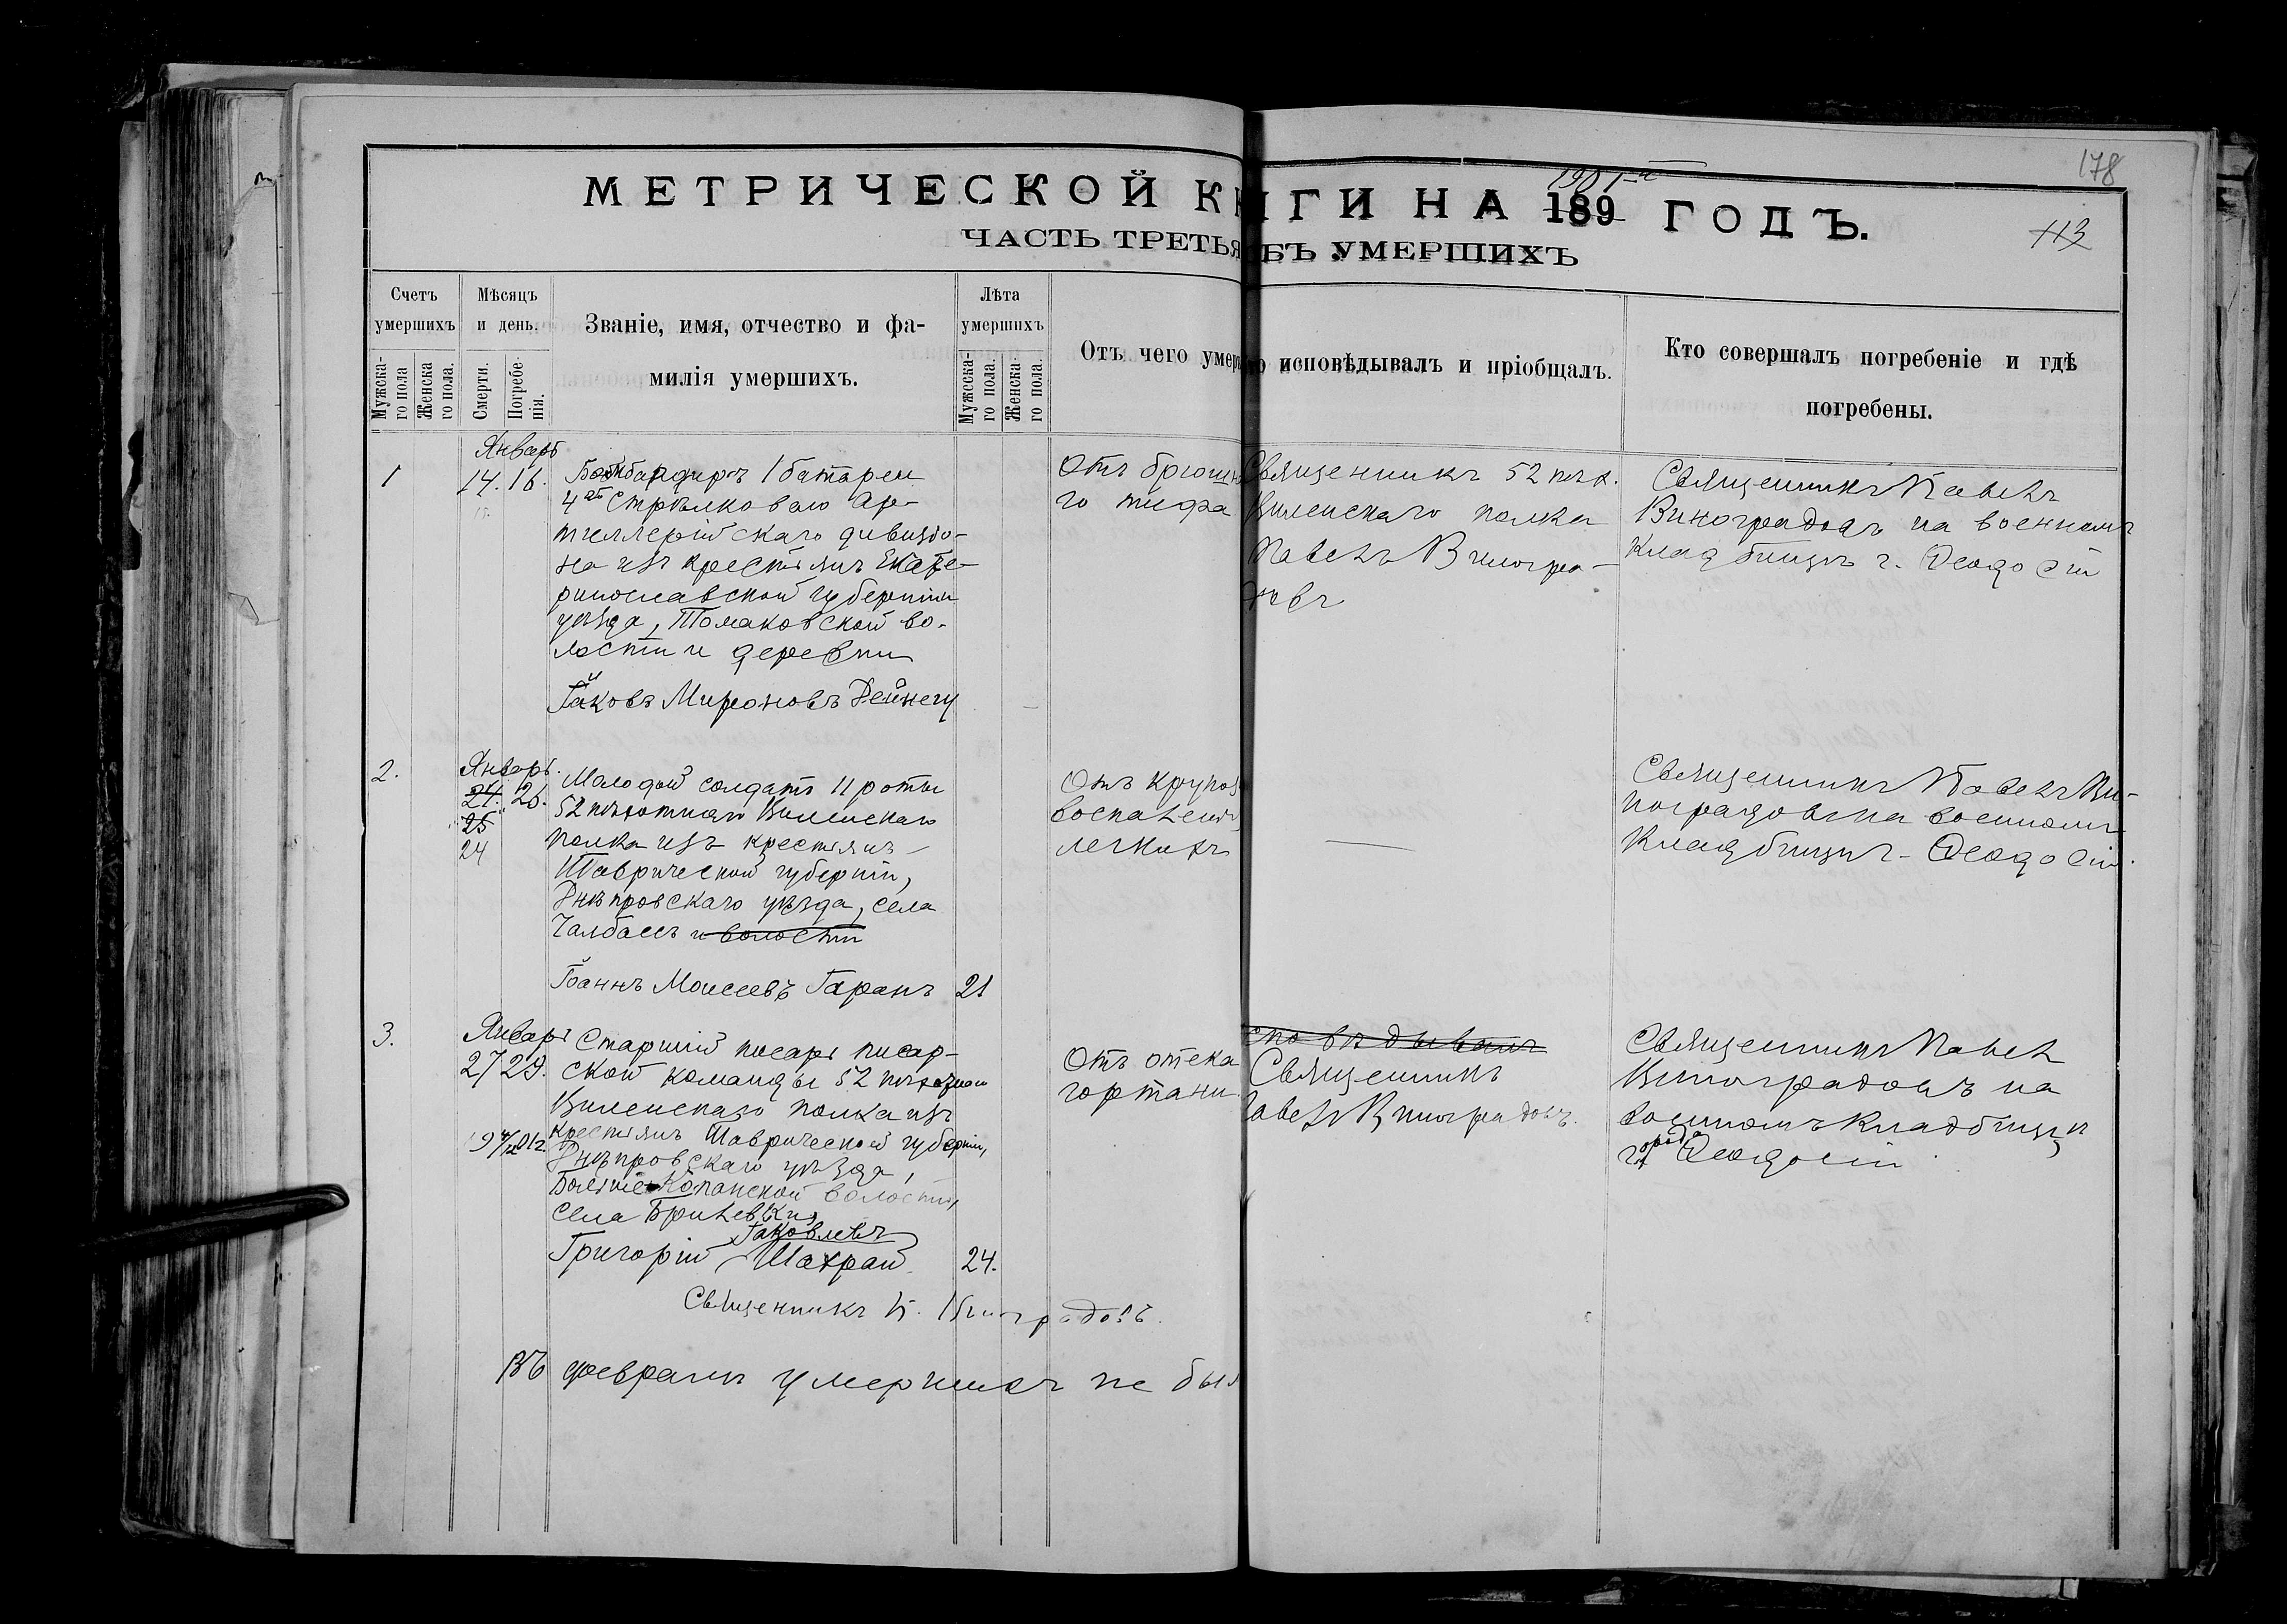 178
113
МЕТРИЧЕСКОЙ КНИГИ НА 189 ГОДЪ.
1901-й
ЧАСТЬ ТРЕТЬЯ БЪ УМЕРШИХЪ
Счетъ умершихъ
Мужска-го пола
Женска го пола.
Мѣсяцъ и день.
Смерти.
Погребе-нія.
Званіе, имя, отчество и фа-
милія умершихъ.
Лѣта умершихъ
Мужеска-го пола.
Женска-го пола.
Отъ чего умер
то исповѣдывалъ и пріобщалъ.
Кто совершалъ погребеніе и гдѣ
погребены.
1
Январь
14. 16.
Бомбардиръ 1 батареи
4ой Стрѣлковаго Ар-
тиллерійскаго дивизіо-
на изъ крестьянъ Екате-
ринославской губерніи
уѣзда, Томаковской во-
лости и деревни
Іаковъ Мироновъ Дейнегу
Отъ брюшн
го тифа
Священникъ 52 пѣх.
Виленскаго полка
Павелъ Виногра-
довъ
Священникъ Павелъ
Виноградовъ на военномъ
кладбищѣ г. Ѳеодосіи
2.
Январь.
24. 26.
25
24
Молодой солдатъ 11 роты
52 пѣхотнаго Виленскаго
полка изъ крестьянъ
Таврической губерніи,
Днѣпровскаго уѣзда, села
Чалбасъ и волости
Іоаннъ Моисеевъ Гаранъ
21
Отъ крупоз
воспаленія
легкихъ
Священникъ Павелъ Ви-
ноградовъ на военномъ
кладбищѣ г. Ѳеодосіи.
3.
Январь
27 29.
Старшій писарь писар-
ской команды 52 пѣхотнаго
Виленскаго полка изъ
крестьянъ Таврической губерніи,
Днѣпровскаго уѣзда,
Больше-Копанской волости,
села Бригевки,
Іаковлевъ
Григорій Шахрай
24.
Отъ отека
гортани
сповѣдывалъ
Священникъ
авелъ Виноградовъ.
Священникъ Павелъ
Виноградовъ на
военномъ кладбищѣ
города Ѳеодосіи
Священникъ П. Виноградовъ.
Въ февралѣ умершихъ не был